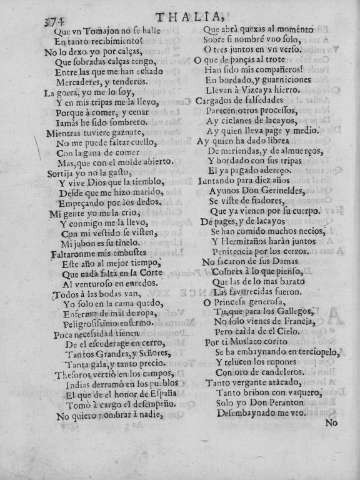 374 THALIA,
Que vn Tomajon no se halle
En tanto recibimiento!
No lo dexo yo por calças,
Que sobradas calças tengo,
Entre las que me han echado
Mercaderes, y tenderos.
La gorra, yo me lo soy,
Y en mis tripas me la llevo,
Porque à comer, y cenar
Iamàs he sido sombrero.
Mientras tuviere gaznate,
No me puede faltar cuello,
Con la gana de comer
Mas, que con el molde abierto.
Sortija yo no la gasto,
Y vive Dios que la tiemblo,
Desde que me hizo marido,
Empeçando por los dedos.
Mi gente yo me la crio,
Y conmigo me la llevo,
Con mi vestido se visten,
Mi jubon es su tinelo.
Faltaronme mis embustes
Este año al mejor tiempo,
Que nada falta en la Corte
Al venturoso en enredos.
Todos à las bodas van,
Yo solo en la cama quedo,
Enfermo de mal de ropa,
Peligrosissimo enfermo.
Poca necessidad tienen
De el escuderage en cerro,
Tantos Grandes, y Señores,
Tanta gala, y tanto precio.
Thesoros vertiò en los campos,
Indias derramò en los pueblos
El que de el honor de España
Tomò à cargo el desempeño.
No quiero nombrar à nadie,
Que abrà quexas al momento
Sobre si nombrè vno solo,
O tres juntos en vn verso.
O que de panças al trote
Han sido mis compañeros!
En bordado, y guarniciones
Llevan à Vizcaya hierro.
Cargados de falsedades
Parecen otros processos,
Ay ciclanes de lacayos,
Ay quien lleva page y medio.
Ay quien ha dado libreа
De meriendas, y de almuerços,
Y bordado con sus tripas
El ya pagado adereço.
Iuntando para diez años
Ayunos Don Gerineldes,
Se viste de fiadores,
Que ya vienen por su cuerpo.
De pages, y de lacayos
Se han comido muchos necios,
Y Hermitaños haràn juntos
Penitencia por los cerros.
No sacaron de sus Damas
Colores à lo que pienso,
Que las de lo mas barato
Las favorecidas fueron.
O Princesa generosa,
Tu, que para los Gallegos,
No solo vienes de Francia,
Pero caìda de el Cielo.
Por ti Moslaco corito
Se ha embaynando en terciopelo,
Y relucen los ropones
Con oro de candeleros.
Tanto vergante atacado,
Tanto bribon con vaquero,
Solo yo Don Peranton
Desembaynado me veo.
No